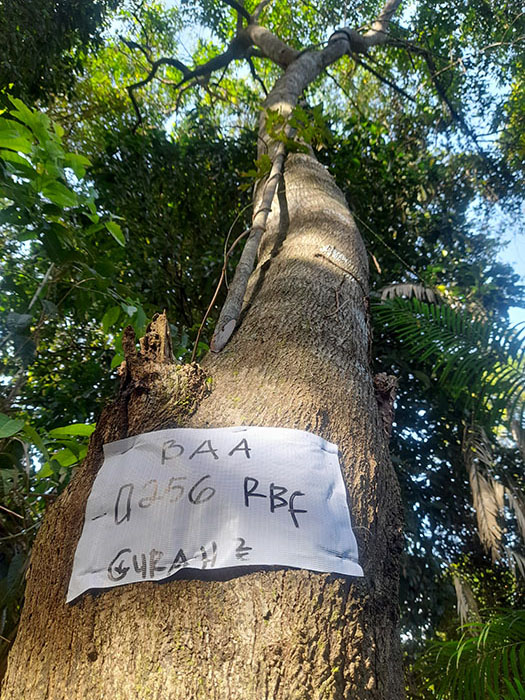 BAA
-0256 RBF
GURAHZ